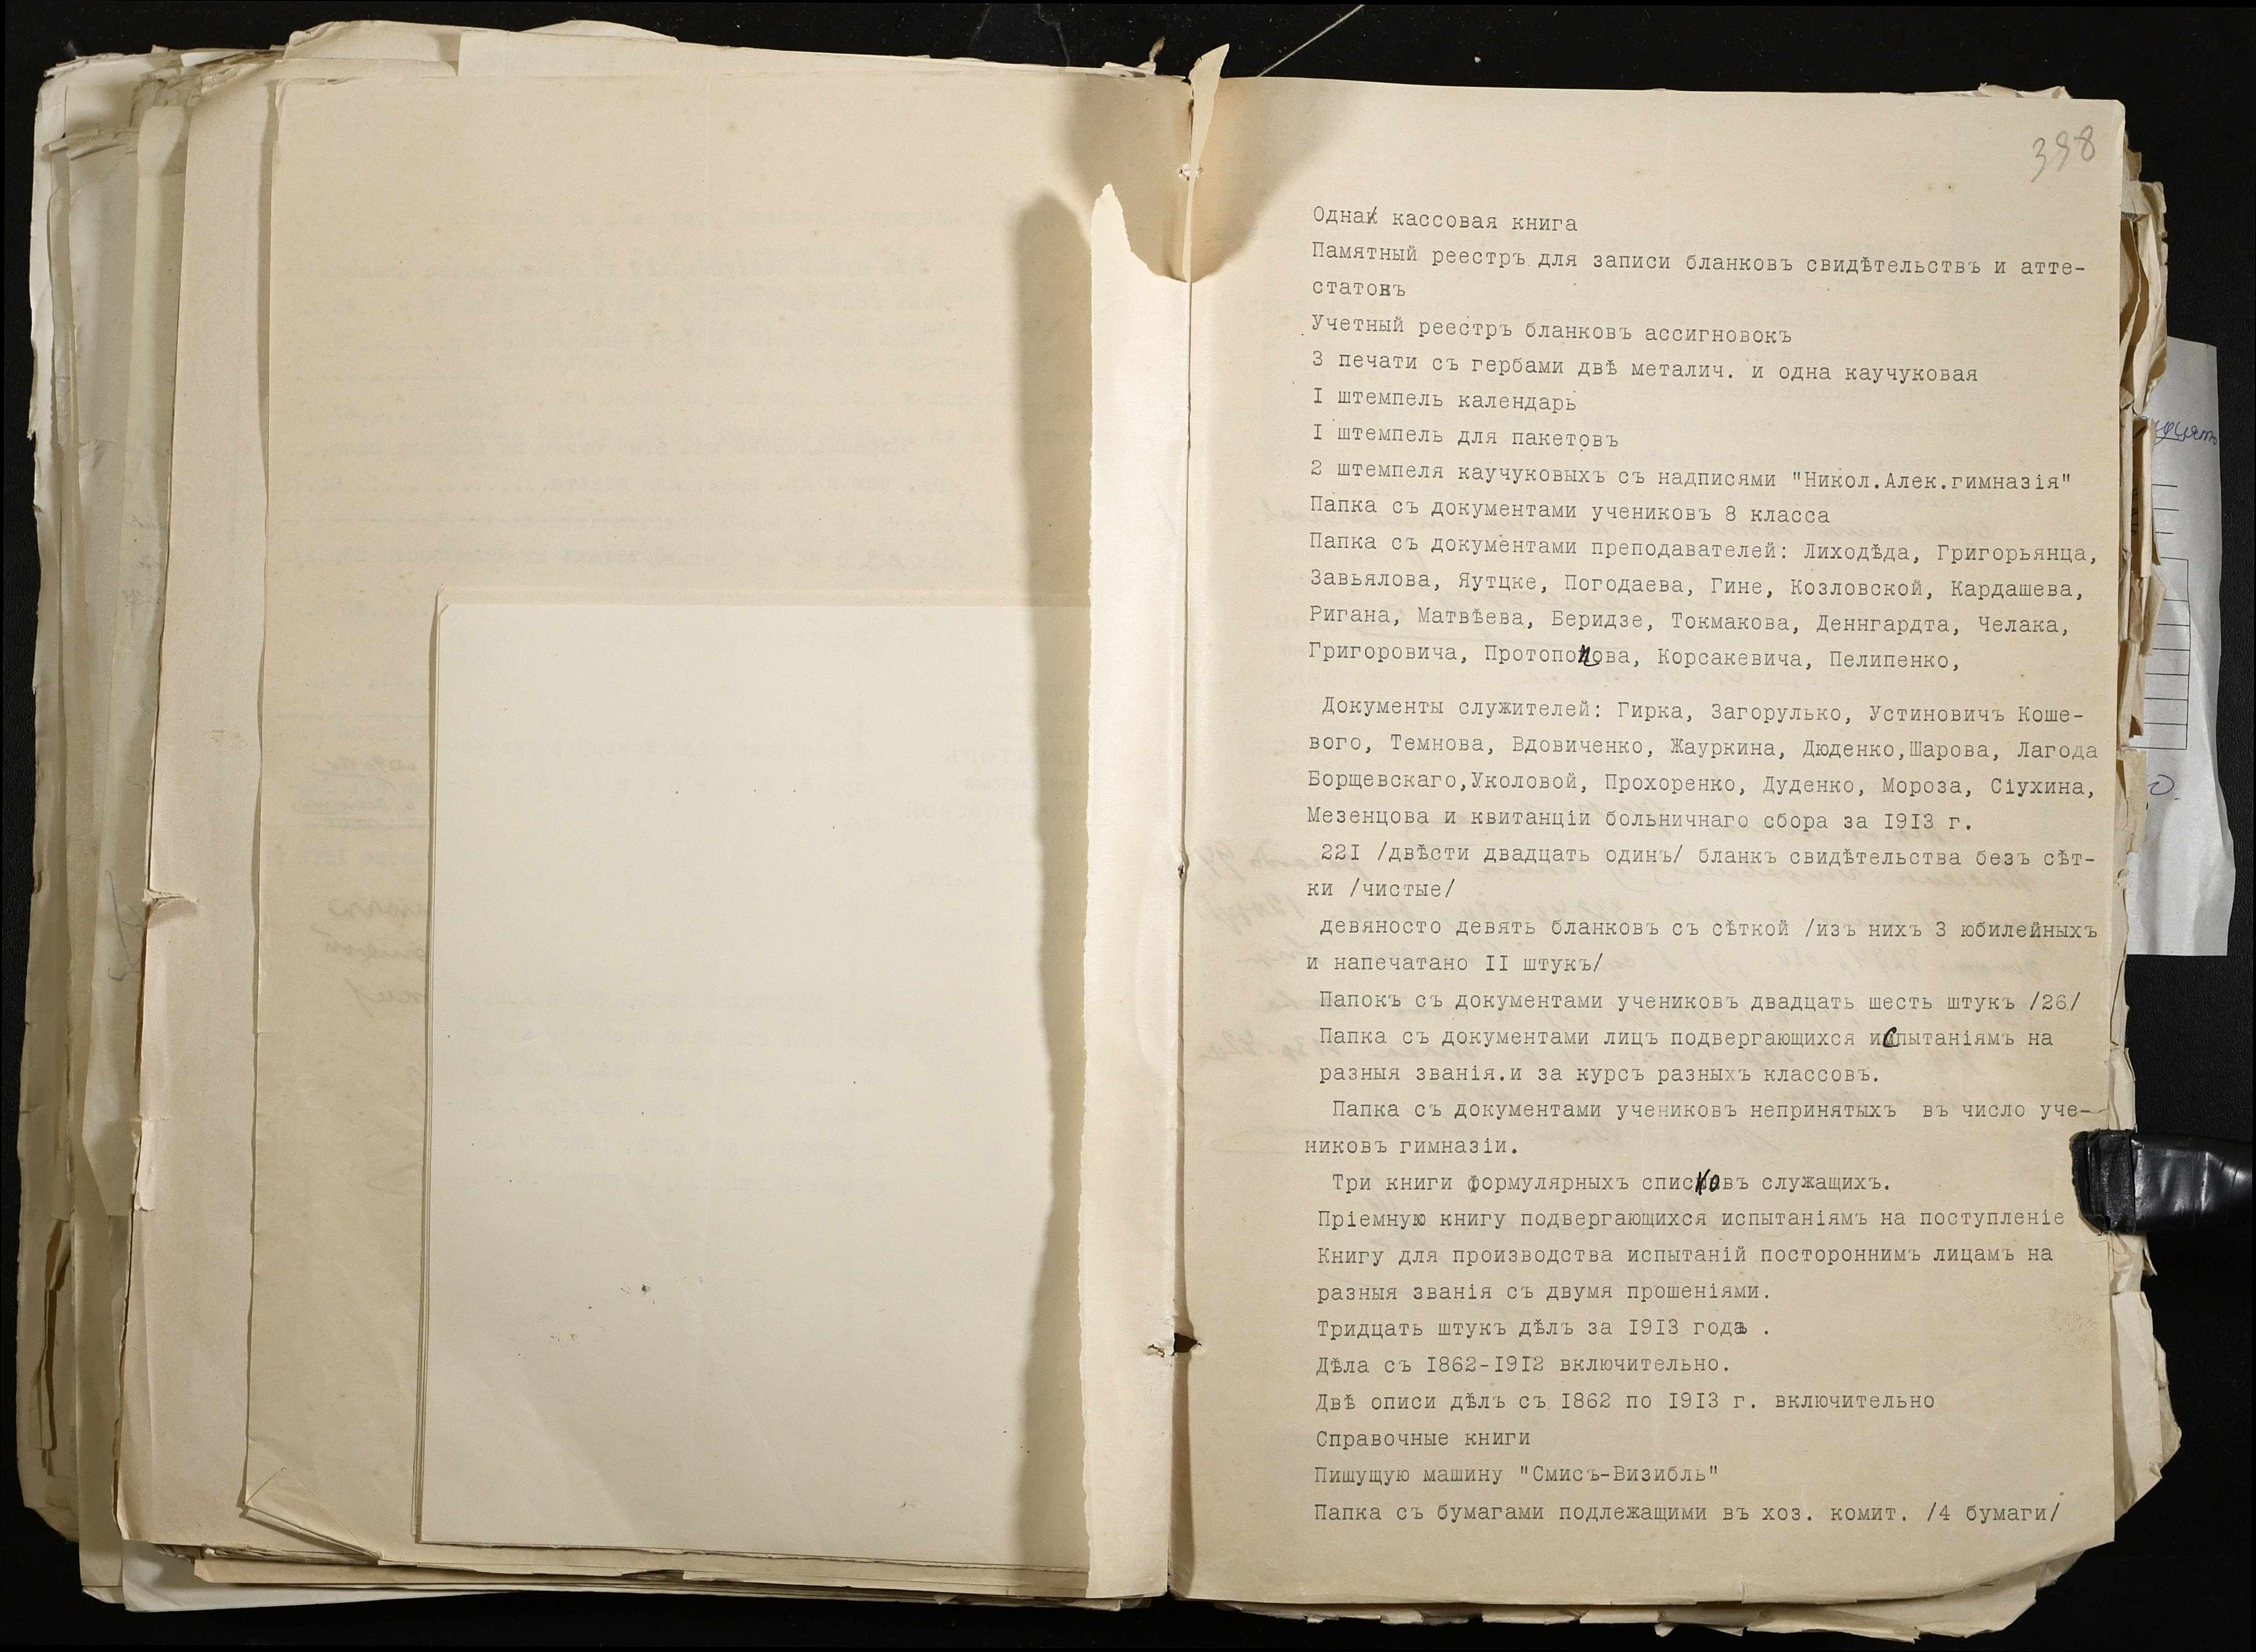 398
Одна кассовая книга
Памятный реестръ для записи бланковъ свидѣтельствъ и атте-
статовъ
Учетный реестръ бланковъ ассигновокъ
3 печати съ гербами двѣ металич. и одна каучуковая
I штемпель календарь
I штемпель для пакетовъ
2 штемпеля каучуковыхъ съ надписями "Никол.Алек.гимназія"
Папка съ документами учениковъ 8 класса
Папка съ документами преподавателей: Лиходѣда, Григорьянца,
Завьялова, Яутцке, Погодаева, Гине, Козловской, Кардашева,
Ригана, Матвѣева, Беридзе, Токмакова, Деннгардта, Челака,
Григоровича, Протопопова, Корсакевича, Пелипенко,
Документы служителей: Гирка, Загорулько, Устиновичъ Коше-
вого, Темнова, Вдовиченко, Жауркина, Дюденко,Шарова, Лагода
Борщевскаго,Уколовой, Прохоренко, Дуденко, Мороза, Сіухина,
Мезенцова и квитанціи больничнаго сбора за I9I3 г.
22I /двѣсти двадцать одинъ/ бланкъ свидѣтельства безъ сѣт-
ки /чистые/
девяносто девять бланковъ съ сѣткой /изъ нихъ 3 юбилейныхъ
и напечатано II штукъ/
Папокъ съ документами учениковъ двадцать шесть штукъ /26/
Папка съ документами лицъ подвергающихся испытаніямъ на
разныя званія.и за курсъ разныхъ классовъ.
Папка съ документами учениковъ непринятыхъ въ число уче-
никовъ гимназіи.
Три книги формулярныхъ списковъ служащихъ.
Пріемную книгу подвергающихся испытаніямъ на поступленіе
Книгу для производства испытаній постороннимъ лицамъ на
разныя званія съ двумя прошеніями.
Тридцать штукъ дѣлъ за I9I3 годъ .
Дѣла съ I862-I9I2 включительно.
Двѣ описи дѣлъ съ I862 по I9I3 г. включительно
Справочные книги
Пишущую машину "Смисъ-Визибль"
Папка съ бумагами подлежащими въ хоз. комит. /4 бумаги/